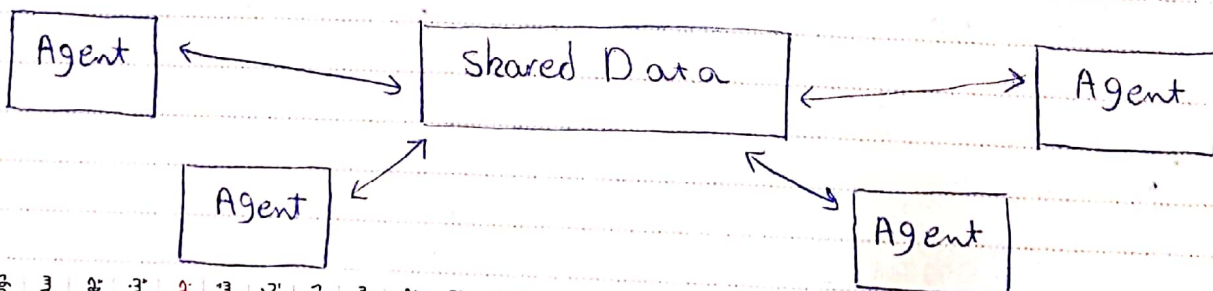 Agent
Shared Data
Agent
Agent
Agent